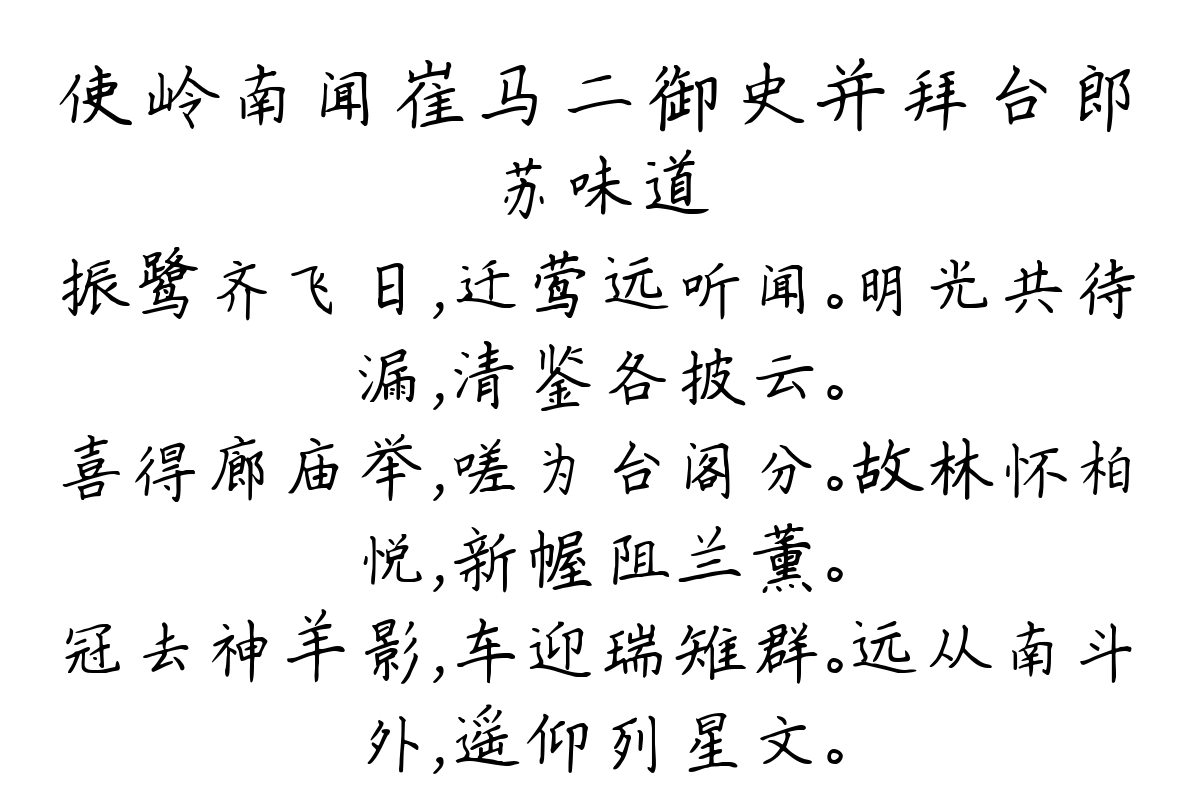 使岭南闻崔马二御史并拜台郎
苏味道
振鹭齐飞日,迁莺远听闻。明光共待
漏,清鉴各披云。
喜得廊庙举,嗟为台阁分。故林怀柏
悦,新幄阻兰薰。
冠去神羊影,车迎瑞雉群。远从南斗
外,遥仰列星文。